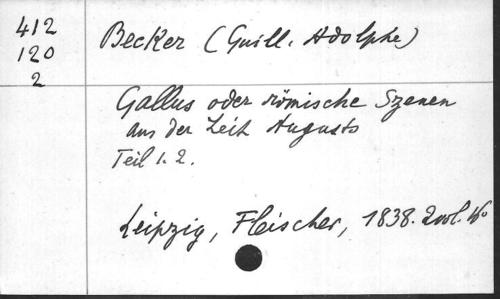 412
120
2
Becker (Guill. Adolphe)
Gallus oder römische Szenen
aus der Zeit Augusts
Teil 1. 2.
Leipzig, Fleischer, 1838. 2 vol. 16º